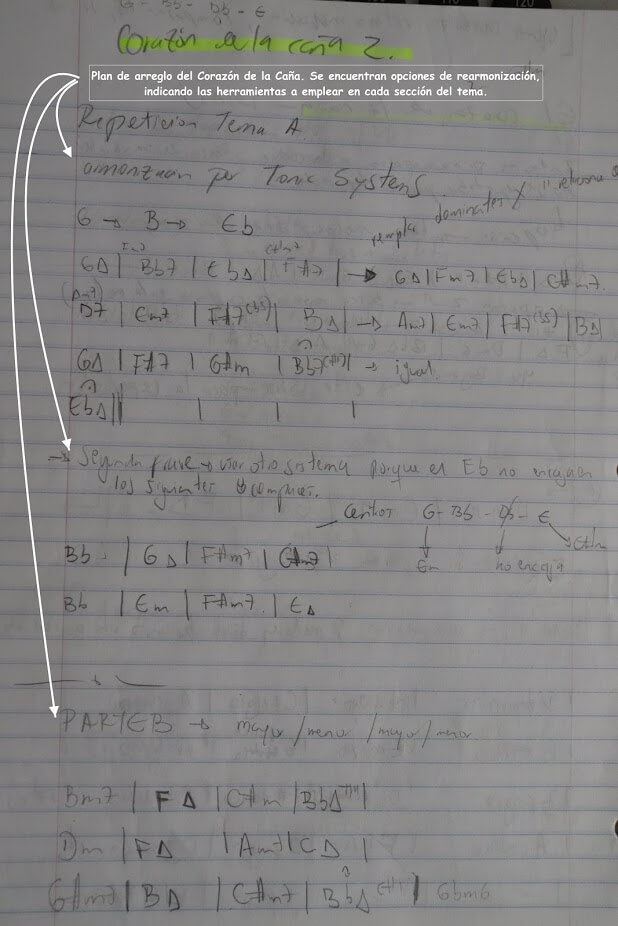 Bb - Db - E
120
Corazón de la caña 2.
Plan de arreglo del Corazón de la Caña. Se encuentran opciones de rearmonización,
indicando las herramientas a emplear en cada sección del tema.
Repeticion Tema A
armonizacion por Tonic Systems
G → B → Eb
dominantes
GΔ | Bb7 | EbΔ | F#7 | → GΔ | Fm7 | EbΔ | C#m7
(Am7)
D7 | Em7 | F#7(b5) | BΔ | → Am7 | Em7 | F#7(b5) | BΔ
GΔ | F#7 | G#m | Bb7 | → igual
EbΔ || | | |
→ Segunda frase → otro sistema porque el Eb no encaja en
los siguientes compases.
G - Bb - Db - E
Bb | GΔ | F#m7 | C#m7 |
Em no encaja C#m
Bb | Em | F#m7 | EΔ
PARTE B → mayor / menor / mayor / menor
Bm7 | FΔ | C#m | BbΔ |
Dm | FΔ | Am7 | CΔ |
G#m7 | BΔ | C#m7 | BbΔ | Gbm6